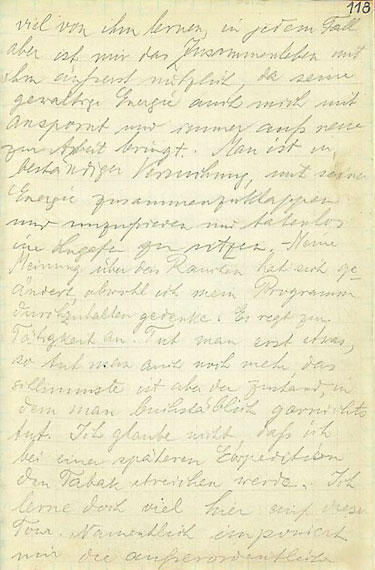 118
viel von ihm lernen, in jedem Fall
aber ist mir das Zusammenleben mit
ihm äusserst nützlich, da seine
gewaltige Energie auch mich mit
anspornt und immer aufs neue
zur Arbeit bringt. Man ist in
beständiger Versuchung, mit seiner
Energie zusammenzuklappen
und unzufrieden und tatenlos
im zu sitzen. Meine
Meinung über das Rauchen hat sich ge-
ändert, obwohl ich mein Programm
durchzuhalten gedenke. Es regt zur
Tätigkeit an. Tut man erst etwas,
so tut man auch noch mehr, das
schlimmste ist aber der Zustand, in
dem man buchstäblich garnichts
tut. Ich glaube nicht, daß ich
bei einer späteren Expedition
den Tabak streichen werde. Ich
lerne doch viel hier auf dieser
Tour. Namentlich imponiert
mir die außerordentliche